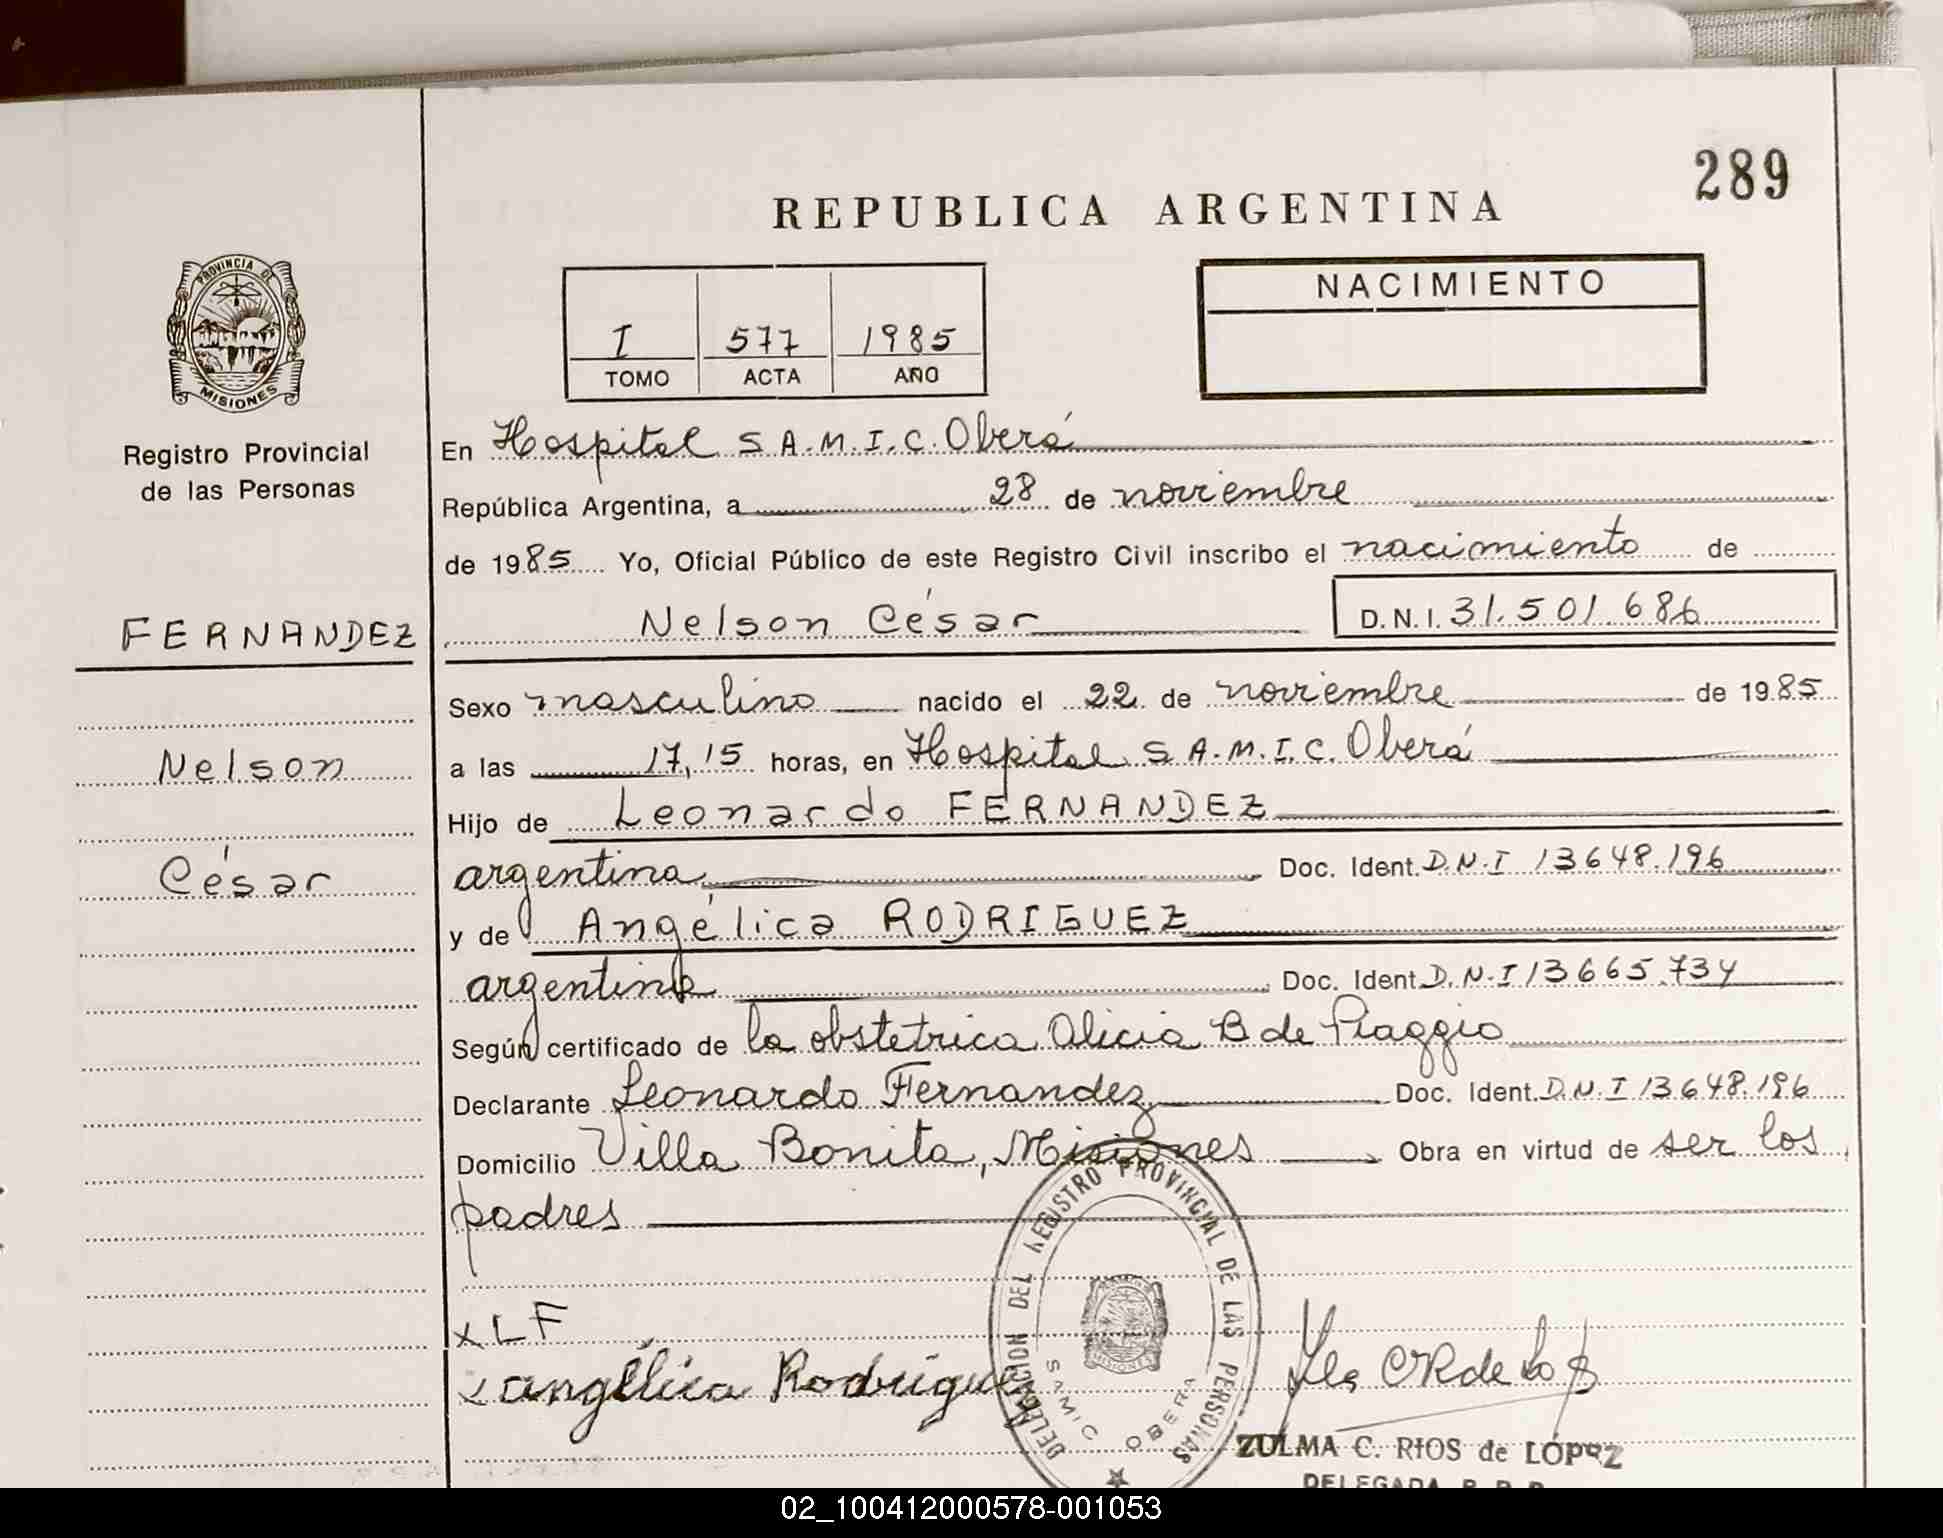 289
REPUBLICA ARGENTINA
PROVINCIA DE
MISIONES
Registro Provincial
de las Personas
I 577 1985
TOMO ACTA AÑO
NACIMIENTO
En Hospital S.A.M.I.C. Oberá
República Argentina, a 28 de noviembre
de 1985 Yo, Oficial Público de este Registro Civil inscribo el nacimiento de
FERNANDEZ
Nelson
César
Nelson César D.N.I. 31.501.686
Sexo masculino nacido el 22 de noviembre de 1985
a las 17,15 horas, en Hospital S.A.M.I.C. Oberá
Hijo de Leonardo FERNANDEZ
argentina Doc. Ident. D.N.I 13648.196
y de Angélica RODRIGUEZ
argentina Doc. Ident. D.N.I 13665.734
Según certificado de la obstetrica Alicia B de Piaggio
Declarante Leonardo Fernandez Doc. Ident. D.N.I 13648.196
Domicilio Villa Bonita, Misiones Obra en virtud de ser los
padres
x L F
x angélica Rodrigue
DELEGACION DEL REGISTRO PROVINCIAL DE LAS PERSONAS
SAMIC OBERA
MISIONES
ZULMA C. RIOS de LÓPEZ
DELEGADA
02_100412000578-001053